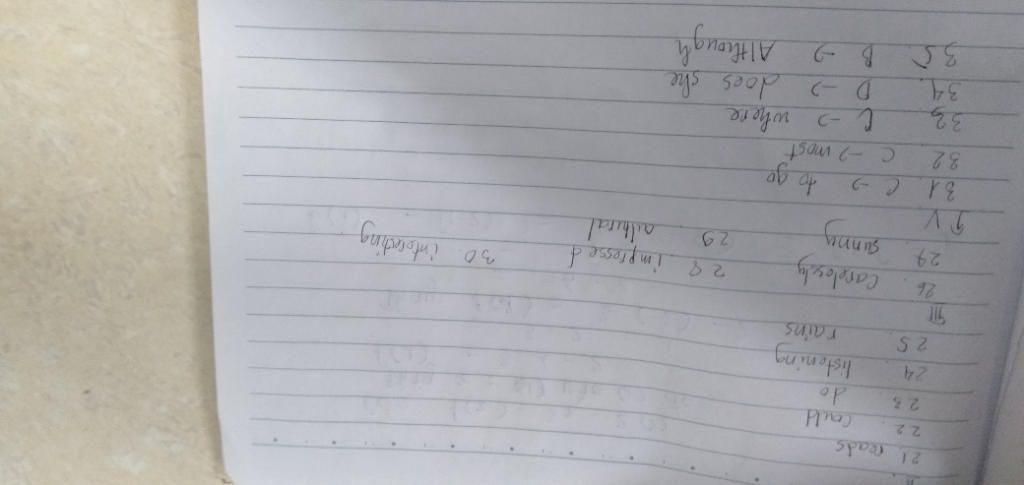 II
21 reads
22 could
23 do
24 listening
25 rains
III
26 carelessly 28 impressed 30 interesting
29 sunny 29 cultural
IV
31 C → to go
32 C → most
33 C → where
34 D → does she
35 B → Although